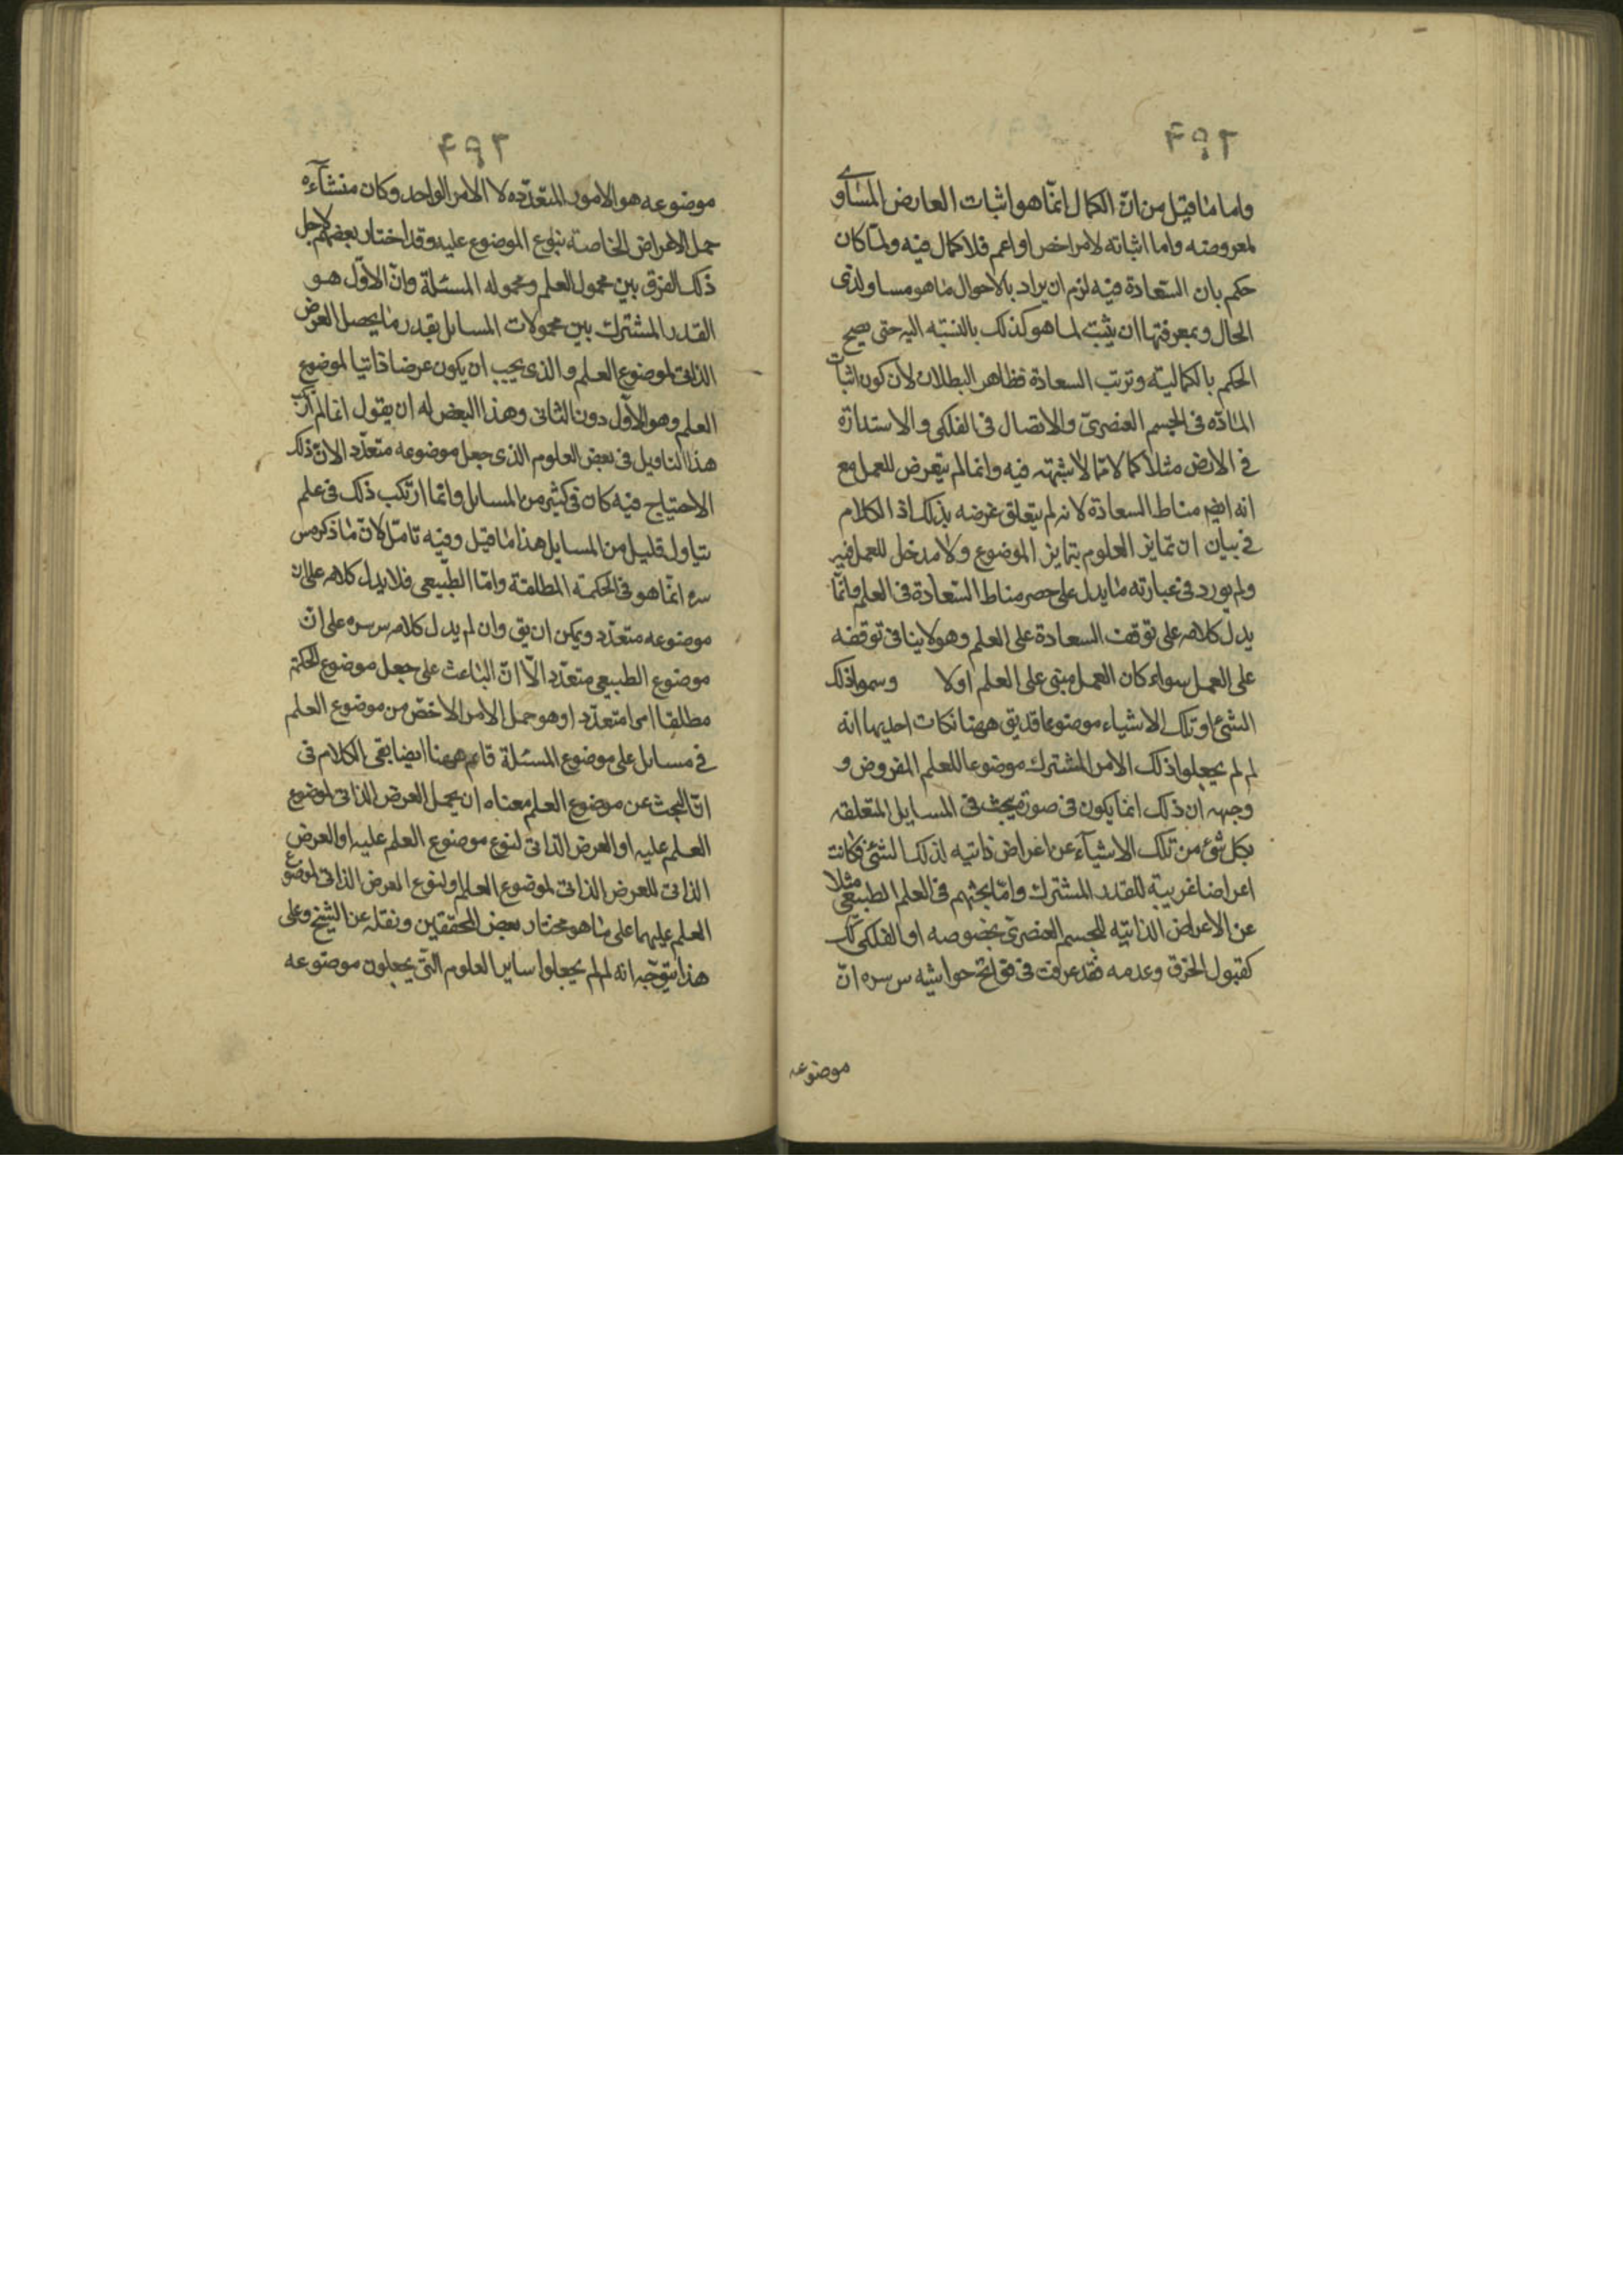 ۲۹۲
واما ما قيل من ان الكمال انما هو اثبات العارض المساوى
لمعروضه واما اثباته لامر اخص او اعم فلا كمال فيه ولما كان
حكم بان السعادة فيه لزم ان يراد بالاحوال ما هو مساو لذى
الحال وبمعرفتها ان يثبت لما هو كذلك بالنسبة اليه حتى يصح
الحكم بالكمالية وترتب السعادة فظاهر البطلان لان كون اثبات
المادة فى الجسم العنصرى والاتصال فى الفلكى والاستدارة
فى الارض مثلا كمالا مما لا شبهة فيه وانما لم يتعرض للعمل مع
انه ايضا مناط السعادة لانه لم يتعلق غرضه بذلك اذ الكلام
فى بيان ان تمايز العلوم بتمايز الموضوع ولا مدخل للعمل فيه
ولم يورد فى عبارته ما يدل على حصر مناط السعادة فى العلم وانما
يدل كلامه على توقف السعادة على العلم وهو لا ينافى توقفه
على العمل سواء كان العمل مبنى على العلم اولا وسموا ذلك
الشئ او تلك الاشياء موضوعا قد يق ههنا نكات احديها انه
لم لم يجعلوا ذلك الامر المشترك موضوعا للعلم المفروض و
وجهه ان ذلك انما يكون فى صورة يبحث فى المسايل المتعلقه
بكل شئ من تلك الاشيآء عن اعراض ذاتيه لذلك الشئ فكانت
اعراضا غريبة للقدر المشترك واما بحثهم فى العلم الطبيعى مثلا
عن الاعراض الذاتيه للجسم العنصرى بخصوصه او الفلكى كك
كقبول الخرق وعدمه فقد عرفت فى فواتح حواشيه س سره ان
موضوعه
۲۹۳
موضوعه هو الامور المتعدده لا الامر الواحد وكان منشآءه
حمل الاعراض الخاصة بنوع الموضوع عليه وقد اختار بعضهم لاجل
ذلك الفرق بين محمول العلم ومحمولة المسئلة وان الاول هو
القدر المشترك بين محمولات المسايل بقدر ما يحصل العرض
الذاتى لموضوع العلم والذى يجب ان يكون عرضا ذاتيا لموضوع
العلم وهو الاول دون الثانى وهذا البعض له ان يقول انما لم يرتكب
هذا التاويل فى بعض العلوم الذى جعل موضوعه متعدد الان ذلك
الاحتياج فيه كان فى كثير من المسايل وانما ارتكب ذلك فى علم
يتاول قليل من المسايل هذا ما قيل وفيه تامل لان ما ذكره س
سره انما هو فى الحكمة المطلقة واما الطبيعى فلا يدل كلامه على ان
موضوعه متعدد ويمكن ان يق وان لم يدل كلامه س سره على ان
موضوع الطبيعى متعدد الا ان الباعث على جعل موضوع الحكمة
مطلقا امرا متعدد او هو حمل الامر الاخص من موضوع العلم
فى مسايل على موضوع المسئلة قائم ههنا ايضا بقى الكلام فى
ان البحث عن موضوع العلم معناه ان يحمل العرض الذاتى لموضوع
العلم عليه او العرض الذاتى لنوع موضوع العلم عليه او العرض
الذاتى للعرض الذاتى لموضوع العلم او لنوع العرض الذاتى لموضوع
العلم عليهما على ما هو مختار بعض المحققين ونقله عن الشيخ وعلى
هذا يتوجه انه لم لم يجعلوا ساير العلوم التى يجعلون موضوعه